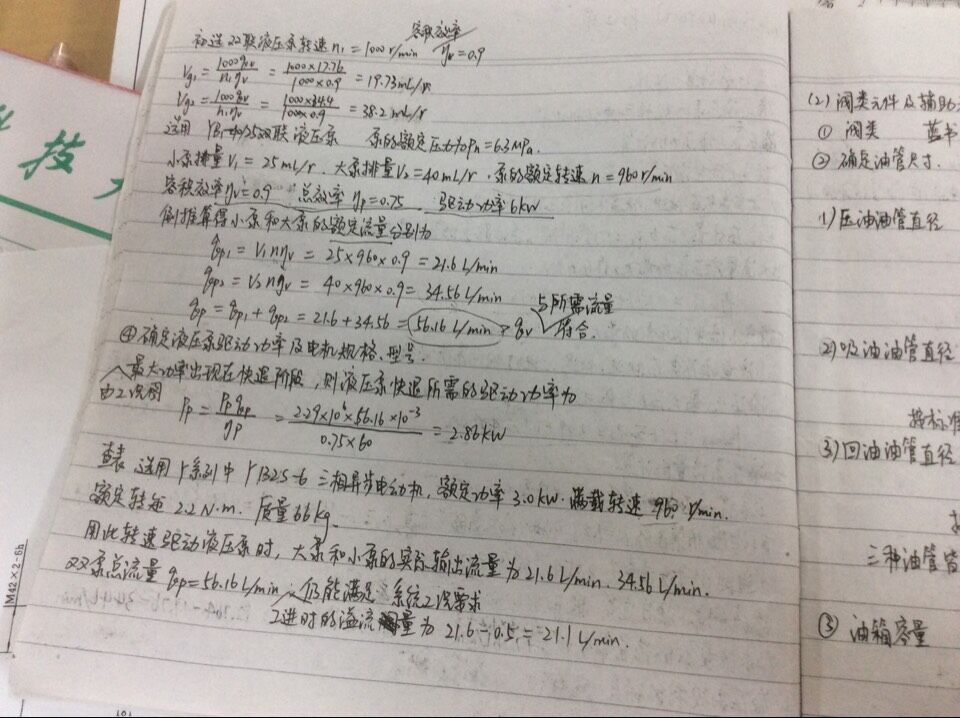 初选双联液压泵转速 n₁=1000 r/min 容积效率 ηv=0.9
Vg₁ = 1000qv/n₁ηv = 1000×17.76/1000×0.9 = 19.73mL/r
Vg₂ = 1000qv/n₁ηv = 1000×34.4/1000×0.9 = 38.2mL/r
选用 双联液压泵 泵的额定压力为Pn=6.3MPa.
小泵排量V₁=25mL/r. 大泵排量V₂=40mL/r. 泵的额定转速n=960r/min
容积效率ηv=0.9 总效率 ηp=0.75 驱动功率6kW
倒推算得小泵和大泵的额定流量分别为
qp₁=V₁nηv=25×960×0.9=21.6L/min
qp₂=V₂nηv=40×960×0.9=34.56L/min
qp=qp₁+qp₂=21.6+34.56=56.16L/min > qv 与所需流量符合.
④确定液压泵驱动功率及电机规格、型号.
由工况图 最大功率出现在快退阶段,则液压泵快退所需的驱动功率为
Pp = Pp qvp/ηp = 2.29×10⁶×56.16×10⁻³/0.75×60 = 2.86kW
查表 选用Y系列中Y132S-6 三相异步电动机,额定功率3.0kW. 满载转速960r/min.
额定转矩 2.2N·m. 质量66kg.
用此转速驱动液压泵时,大泵和小泵的实际输出流量为21.6L/min. 34.56L/min.
双泵总流量 qvp=56.16L/min ∴仍能满足系统工况要求
工进时的溢流量为 21.6-0.5=21.1L/min.
(2)阀类元件及辅助
① 阀类 蓝书
② 确定油管尺寸.
1)压油油管直径
2)吸油油管直径
按标准
3)回油油管直径
三种油管皆
③ 油箱容量
科技
M42×2-6h